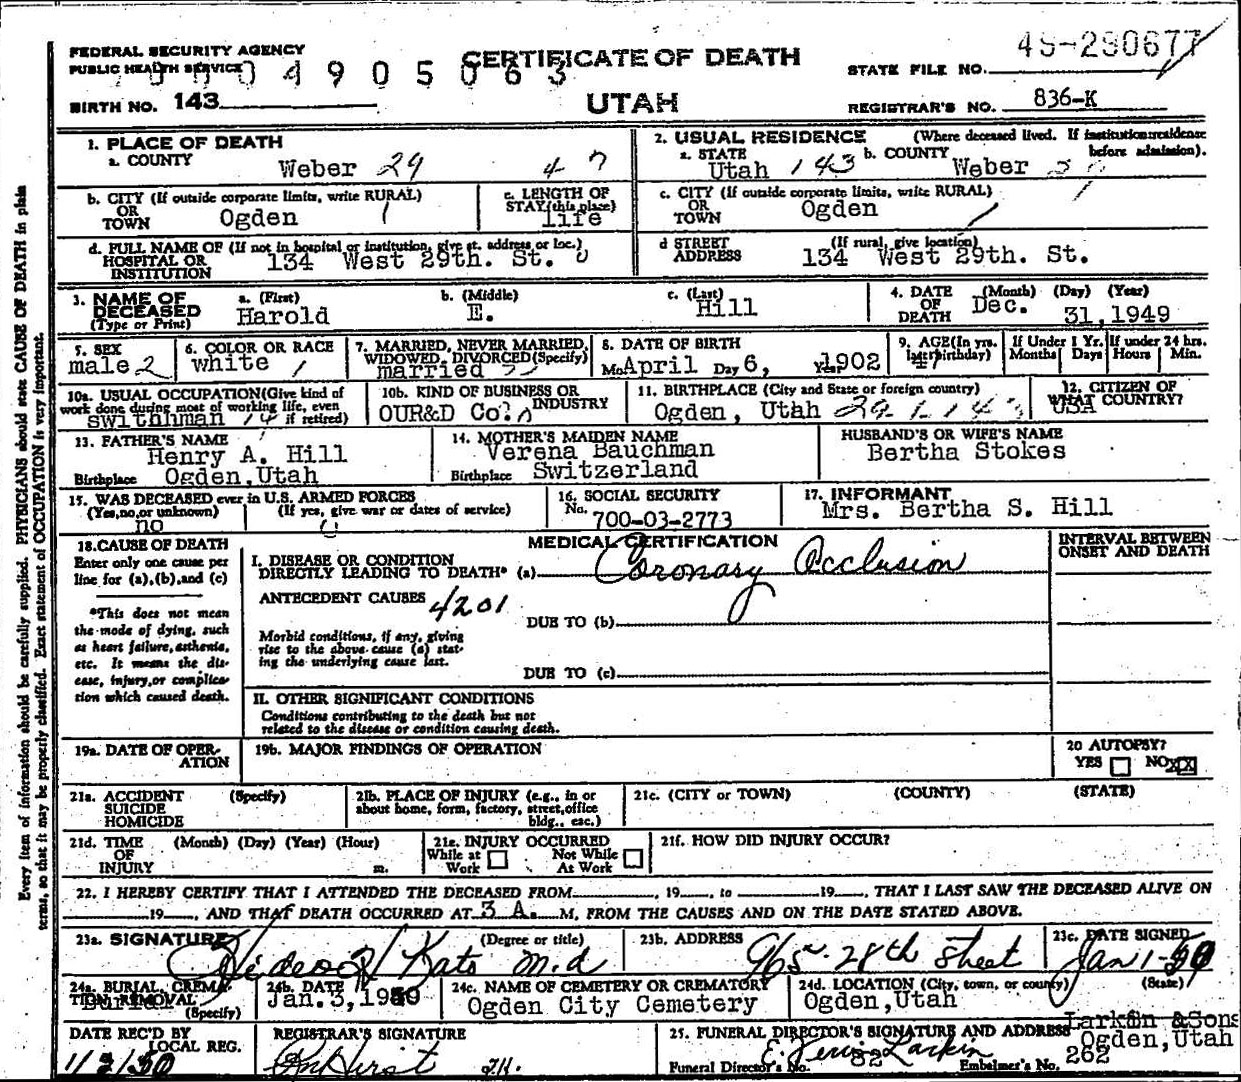 FEDERAL SECURITY AGENCY
PUBLIC HEALTH SERVICE
CERTIFICATE OF DEATH
UTAH
BIRTH NO. 143
STATE FILE NO. 49-290677
REGISTRAR'S NO. 836-K
1. PLACE OF DEATH
a. COUNTY Weber 29
2. USUAL RESIDENCE (Where deceased lived. If institution: residence before admission).
a. STATE Utah 143 b. COUNTY Weber
b. CITY (If outside corporate limits, write RURAL) OR TOWN Ogden
c. LENGTH OF STAY (this place) life
c. CITY (If outside corporate limits, write RURAL) OR TOWN Ogden
d. FULL NAME OF (If not in hospital or institution, give st. address or loc.) HOSPITAL OR INSTITUTION 134 West 29th. St.
d STREET ADDRESS (If rural, give location) 134 West 29th. St.
3. NAME OF DECEASED (Type or Print)
a. (First) Harold
b. (Middle) E.
c. (Last) Hill
4. DATE OF DEATH (Month) (Day) (Year) Dec. 31, 1949
5. SEX male 2
6. COLOR OR RACE white
7. MARRIED, NEVER MARRIED, WIDOWED, DIVORCED (Specify) married
8. DATE OF BIRTH Mo. April Day 6, Yr. 1902
9. AGE (In yrs. last birthday) 47
If Under 1 Yr. Months Days
If under 24 hrs. Hours Min.
10a. USUAL OCCUPATION (Give kind of work done during most of working life, even if retired) swithhman
10b. KIND OF BUSINESS OR INDUSTRY OUR&D Co.
11. BIRTHPLACE (City and State or foreign country) Ogden, Utah
12. CITIZEN OF WHAT COUNTRY? USA
13. FATHER'S NAME Henry A. Hill
Birthplace Ogden, Utah
14. MOTHER'S MAIDEN NAME Verena Bauchman
Birthplace Switzerland
HUSBAND'S OR WIFE'S NAME
Bertha Stokes
15. WAS DECEASED ever in U.S. ARMED FORCES
(Yes, no, or unknown) (If yes, give war or dates of service)
no
16. SOCIAL SECURITY No. 700-03-2773
17. INFORMANT
Mrs. Bertha S. Hill
18. CAUSE OF DEATH
Enter only one cause per line for (a), (b), and (c)
*This does not mean the mode of dying, such as heart failure, asthenia, etc. It means the disease, injury, or complication which caused death.
MEDICAL CERTIFICATION
I. DISEASE OR CONDITION DIRECTLY LEADING TO DEATH* (a) Coronary Occlusion
ANTECEDENT CAUSES 4201
DUE TO (b)
Morbid conditions, if any, giving rise to the above cause (a) stating the underlying cause last.
DUE TO (c)
II. OTHER SIGNIFICANT CONDITIONS
Conditions contributing to the death but not related to the disease or condition causing death.
INTERVAL BETWEEN ONSET AND DEATH
19a. DATE OF OPERATION
19b. MAJOR FINDINGS OF OPERATION
20 AUTOPSY?
YES NO XX
21a. ACCIDENT SUICIDE HOMICIDE (Specify)
21b. PLACE OF INJURY (e.g., in or about home, form, factory, street, office bldg., etc.)
21c. (CITY or TOWN) (COUNTY) (STATE)
21d. TIME OF INJURY (Month) (Day) (Year) (Hour) m.
21e. INJURY OCCURRED
While at Work Not While At Work
21f. HOW DID INJURY OCCUR?
22. I HEREBY CERTIFY THAT I ATTENDED THE DECEASED FROM , 19 , to 19 , THAT I LAST SAW THE DECEASED ALIVE ON
19 , AND THAT DEATH OCCURRED AT 3 A. M, FROM THE CAUSES AND ON THE DATE STATED ABOVE.
23a. SIGNATURE (Degree or title) Kato M.d
23b. ADDRESS 965 28th Street
23c. DATE SIGNED Jan 1-50
24a. BURIAL, CREMATION, REMOVAL (Specify) Burial
24b. DATE Jan. 3, 1950
24c. NAME OF CEMETERY OR CREMATORY Ogden City Cemetery
24d. LOCATION (City, town, or county) (State) Ogden, Utah
DATE REC'D BY LOCAL REG. 1/2/50
REGISTRAR'S SIGNATURE
25. FUNERAL DIRECTOR'S SIGNATURE AND ADDRESS Larkin & Sons
Ogden, Utah
Larkin
Funeral Director's No. 82
Embalmer's No. 262
Every item of information should be carefully supplied. PHYSICIANS should state CAUSE OF DEATH in plain
terms, so that it may be properly classified. Exact statement of OCCUPATION is very important.